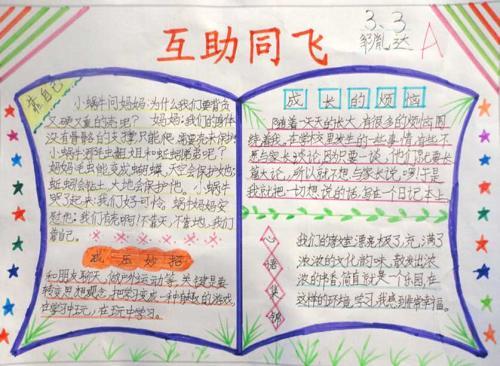 互助同飞
3、3
邹胤达
A
靠自己
小蜗牛问妈妈:为什么我们要背负
又硬又重的壳呢?妈妈:我们的身体
没有骨骼的支撑只能爬,需要壳来保护
小蜗牛:毛虫姐姐和蚯蚓弟弟呢?
妈妈:毛虫能变成蝴蝶,天空会保护她;
蚯蚓会钻土,大地会保护他。小蜗牛
哭了起来:我们好可怜。蜗牛妈妈安
慰他:我们有壳啊!不靠天,不靠地,我们
靠自己。
减压妙招
和朋友聊天,做户外运动等,关键是要
转变思想观念,把学习变成一种有趣的游戏,
在学习中玩,在玩中学习。
成长的烦恼
随着一天天的长大,有很多的烦恼围
绕着我,在学校里发生的一些事情,有些不
愿与家长谈论,因为只要一谈,他们就要长
篇大论,所以就不想与家长说,哪于是
我就把一切想说的话,写在个日记本上
心语集锦
我们的教室漂亮极了,充满了
浓浓的文化韵味,散发出浓
浓的书香,简直就是一个乐园,在
这样的环境学习,我感到非常幸福。